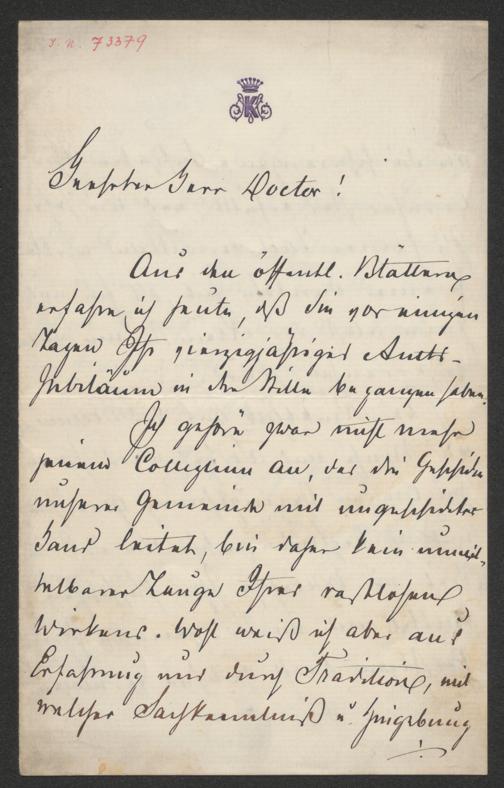 I. N. 73379
K
Geehrter Herr Doctor!
Aus den öffentl. Blättern
erfahre ich heute, daß Sie vor einigen
Tagen Ihr vierzigjähriges Amts-
Jubiläum in der Stille begangen haben.
Ich gehöre zwar nicht mehr
jenem Collegium an, das die Geschicke
unserer Gemeinde mit ungeschickter
Hand leitet, bin daher kein unmit-
telbarer Zeuge Ihres rastlosen
Wirkens. Wohl weiß ich aber aus
Erfahrung und durch Tradition, mit
welcher Sachkenntniß u. Hingebung